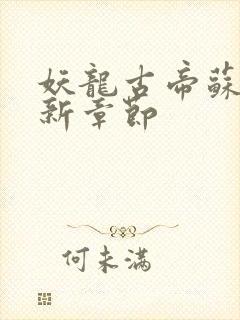 妖龍古帝蘇
新章節
何未滿